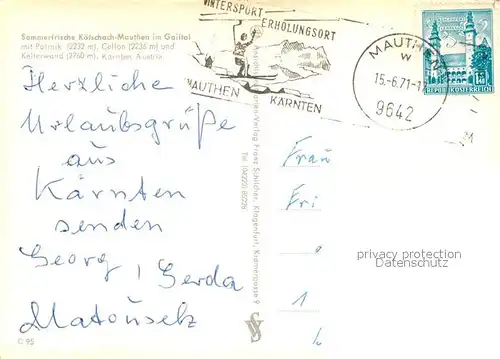 Sommerfrische Kötschach-Mauthen im Gailtal
mit Polinik (2232 m), Cellon (2236 m) und
Kellerwand (2760 m), Kärnten, Austria
Herzliche
Urlaubsgrüße
aus
Kärnten
senden
Georg, Gerda
Matouselz
C 95
WINTERSPORT
ERHOLUNGSORT
MAUTHEN
KÄRNTEN
MAUTHEN
15.-6.71-1
9642
REPUBLIK ÖSTERREICH
Verlag Franz Schilcher, Klagenfurt, Kramergasse 9
Tel. (04222) 85226
Frau
Fri
privacy protection
Datenschutz